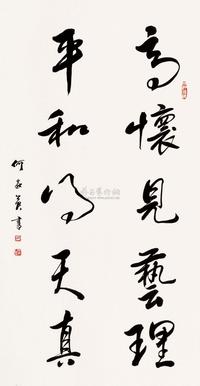 高懷見藝理
平和得天真
何家英書